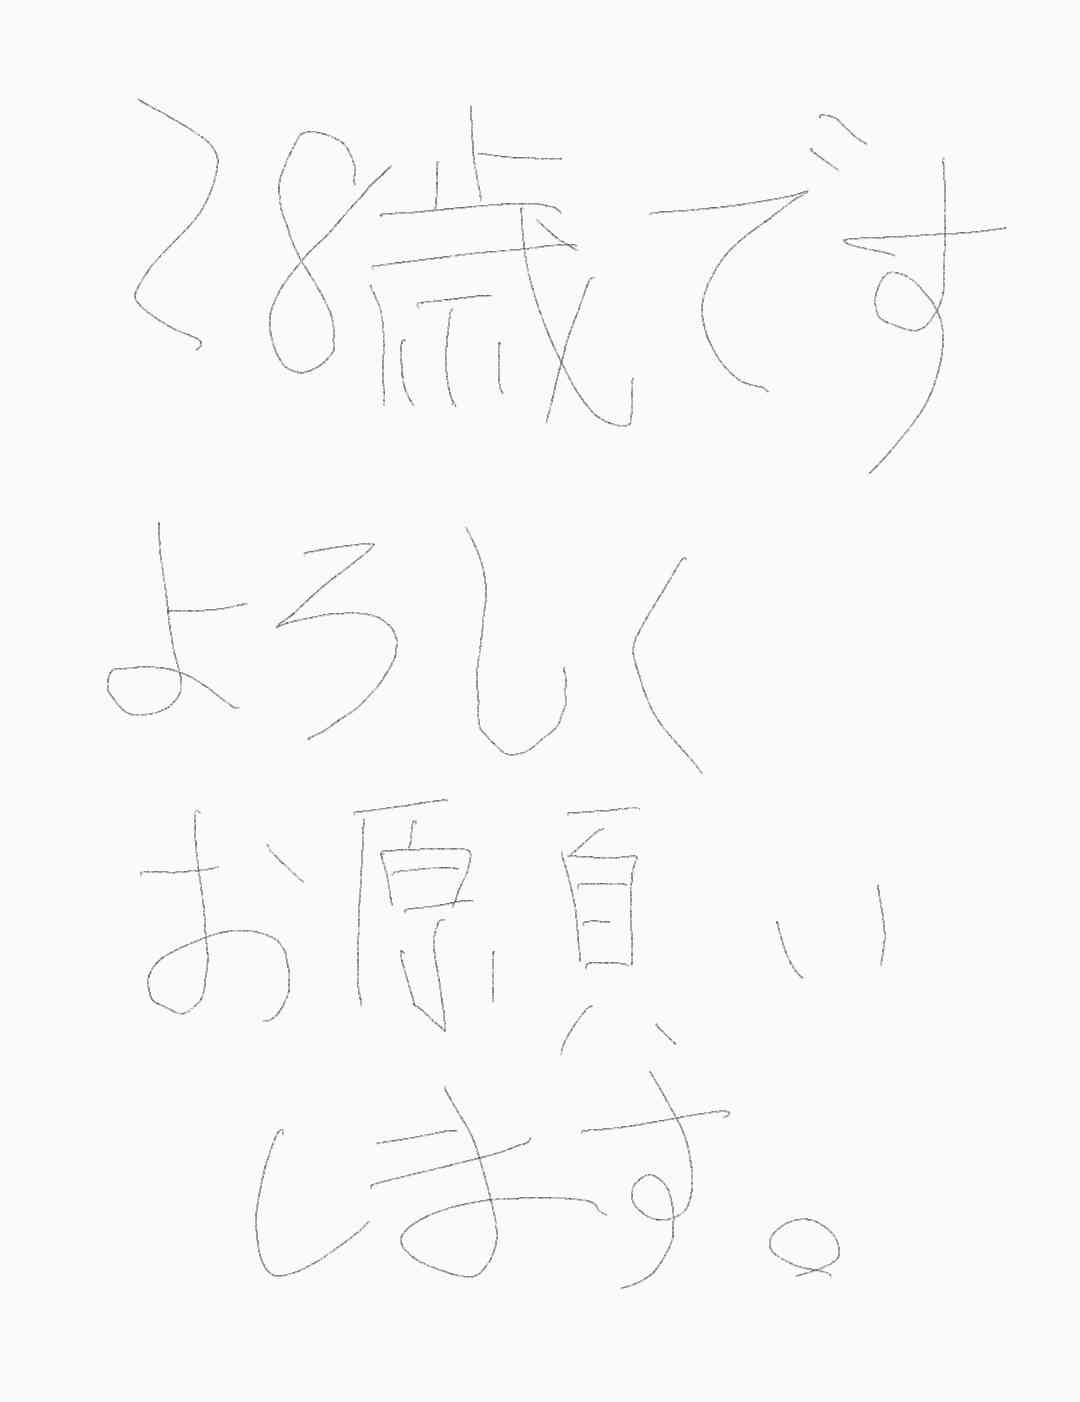 28歳です
よろしく
お願い
します。